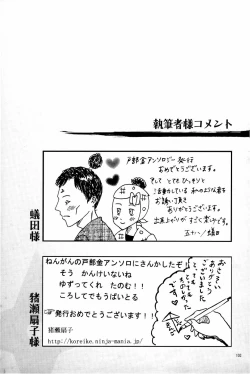 執筆者様コメント
戸郎金アンソロジー発行
おめでとうございます。
そして とても ひっそりと
活動している 私のような者を
お誘い頂き
ありがとうございます。
出来上がりが すごく楽しみです。
蟻田様
ねんがんの戸郎金アンソロにさんかしたぞ!
そう かんけいないね
ゆずってくれ たのむ!!
ころしてでもうばいとる
☞発行おめでとうございます!!
猪瀬扇子
http://koreike.ninja-mania.jp/
ありがとう
ございました
猪瀬扇子様